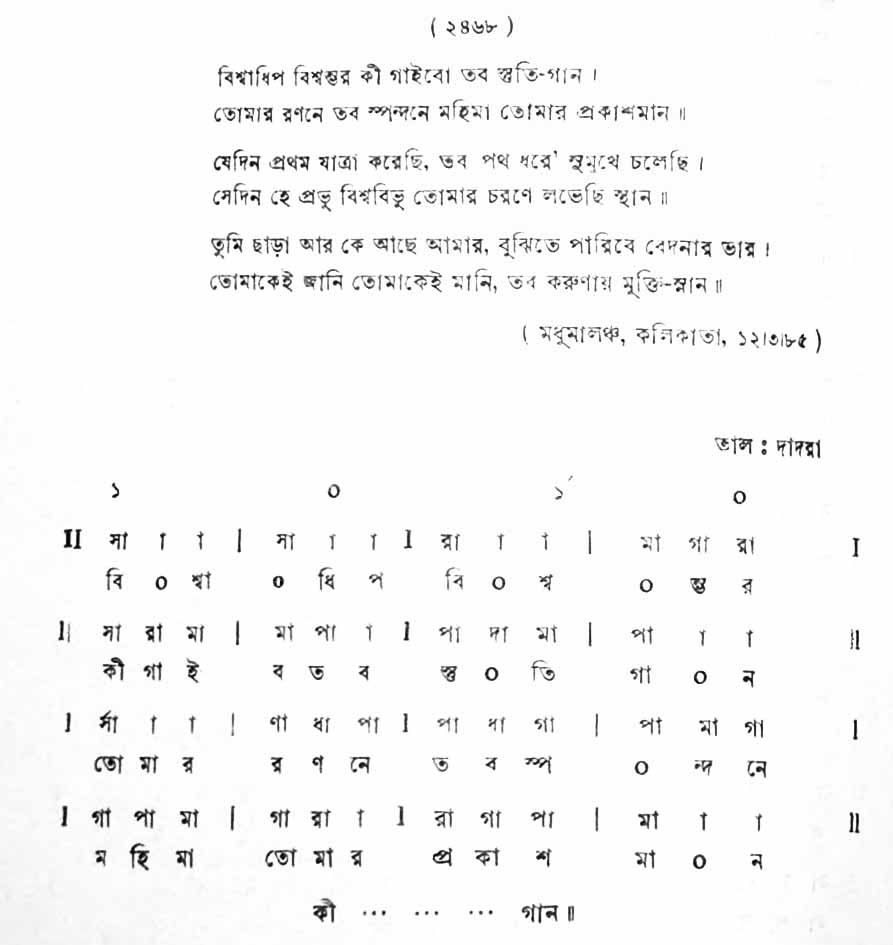 ( ২৪৬৮ )
বিশ্বাধিপ বিশ্বম্ভর কী গাইবো তব স্তুতি-গান ।
তোমার রণনে তব স্পন্দনে মহিমা তোমার প্রকাশমান ॥
যেদিন প্রথম যাত্রা করেছি, তব পথ ধরে' সুমুখে চলেছি ।
সেদিন হে প্রভু বিশ্ববিভু তোমার চরণে লভেছি স্থান ॥
তুমি ছাড়া আর কে আছে আমার, বুঝিতে পারিবে বেদনার ভার ।
তোমাকেই জানি তোমাকেই মানি, তব করুণায় মুক্তি-স্নান ॥
( মধুমালঞ্চ, কলিকাতা, ১২।৩।৮৫ )
তাল : দাদরা
১ ০ ১´ ০
II সা া া | সা া া I রা া া | মা গা রা I
বি ০ শ্বা ০ ধি প বি ০ শ্ব ০ ম্ভ র
I| সা রা মা | মা পা া I পা দা মা | পা া া II
কী গা ই ব ত ব স্তু ০ তি গা ০ ন
I র্সা া া | ণা ধা পা I পা ধা গা | পা মা গা I
তো মা র র ণ নে ত ব স্প ০ ন্দ নে
I গা পা মা | গা রা া I রা গা পা | মা া া II
ম হি মা তো মা র প্র কা শ মা ০ ন
কী ··· ··· ··· গান ॥